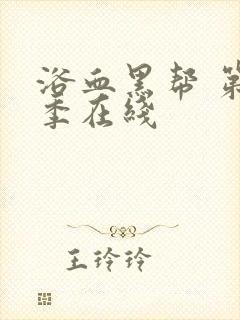 浴血黑帮 第
季在线
王玲玲